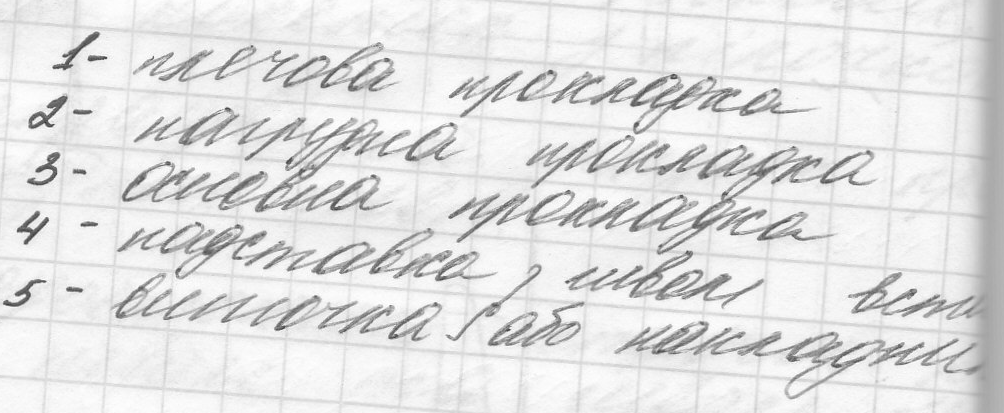 1- плечова прокладка
2- нагрудна прокладка
3- основна прокладка
4 - надставка } швом вст
5 - виточка } або накладни